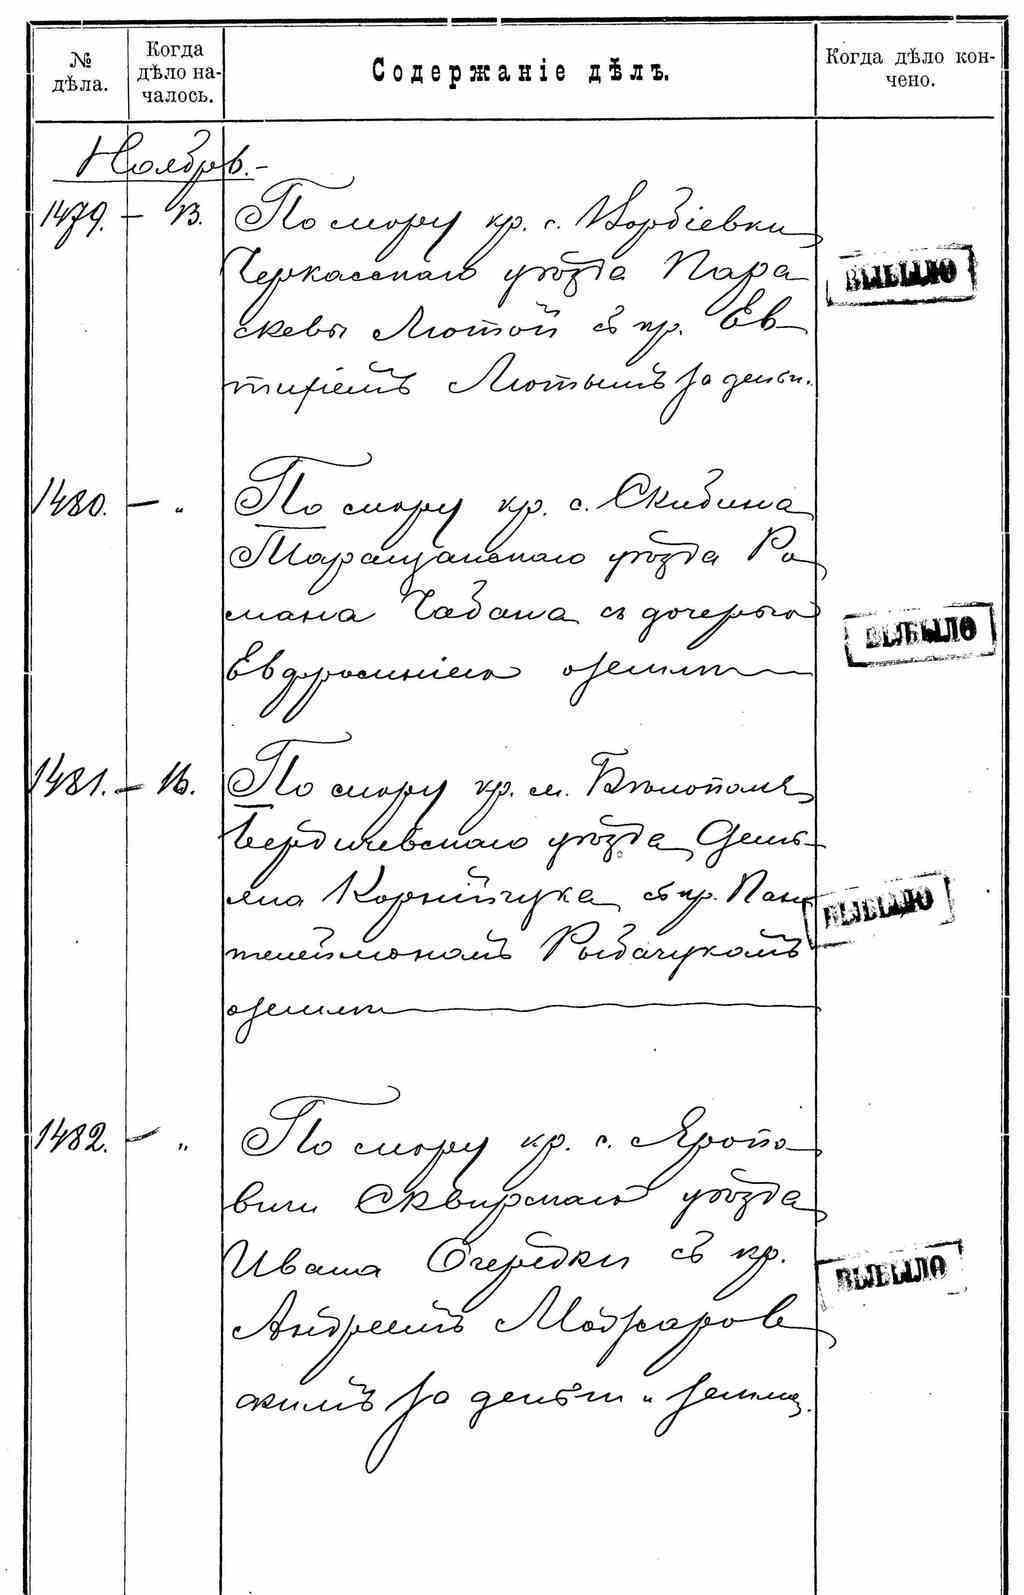 № дѣла.
Когда дѣло на-
чалось.
Содержаніе дѣлъ.
Когда дѣло кон-
чено.
Ноябрь.-
1479. – 13. По спору кр. с. Ворбіевки
Черкасскаго уѣзда Пара
скевы Лютой съ кр. Ев-
тихіемъ Лютымъ за деньги.
ВЫБЫЛО
1480. – „ По спору кр. с. Скибина
Таращанскаго уѣзда Ро
мана Чабана съ дочерью
Евфросиніею о землѣ
ВЫБЫЛО
1481. – 16. По спору кр. м. Бѣлополя
Бердичевскаго уѣзда Демь-
яна Корнійчука съ кр. Пан
телеймономъ Рыбачукомъ
о землѣ
ВЫБЫЛО
1482. – „ По спору кр. с. Яропо
вичи Сквирскаго уѣзда
Ивана Очередки съ кр.
Андреемъ Можаров
скимъ за деньги и землю.
ВЫБЫЛО